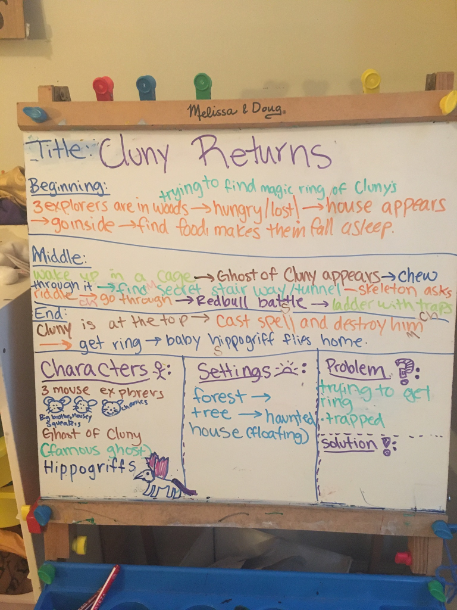 Melissa & Doug
Title: Cluny Returns
Beginning: trying to find magic ring of Cluny's
3 explorers are in woods → hungry/lost! → house appears
→ go inside → find food! makes them fall asleep.
Middle:
wake up in a cage → Ghost of Cluny appears → chew
through it → find secret stair way/tunnel → skeleton asks
riddle → go through → Redbull battle → ladder with traps
End:
Cluny is at the top → cast spell and destroy him
→ get ring → baby hippogriff flies home.
Characters:
3 mouse explorers
Big brother Mousey
Ghost of Cluny
(famous ghost)
Hippogriffs
Settings:
forest →
tree → haunted
house (floating)
Problem ?:
trying to get
ring
trapped
solution!: